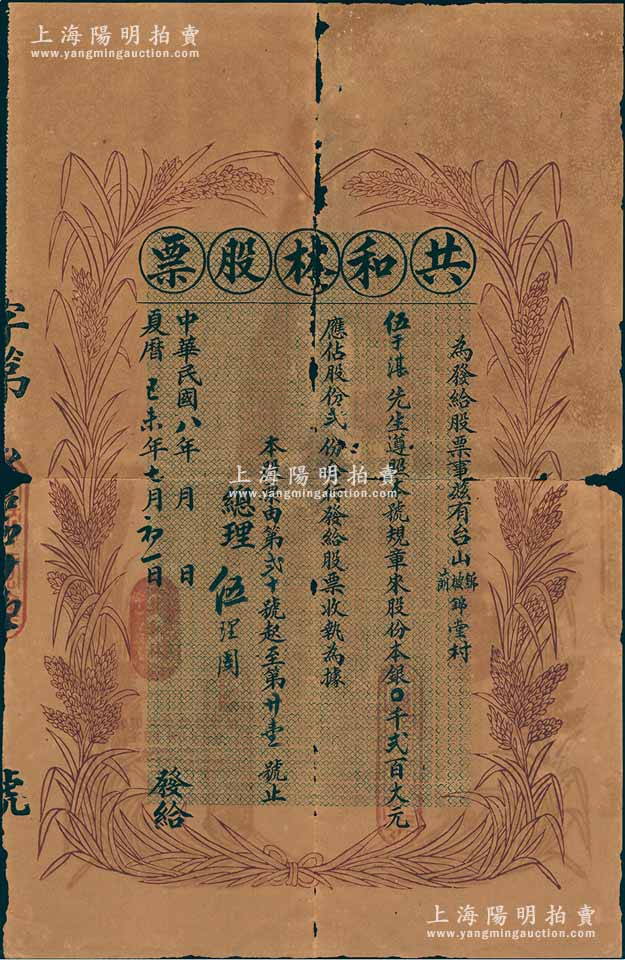 上海陽明拍賣
www.yangmingauction.com
共和林股票
為發給股票事茲有台山
錦堂村
伍于湛先生遵照本號規章來股份本銀〇千弍百大元
應佔股份弍份合發給股票收執為據
本 由第弍十號起至第廿壹號止
總理 伍理周
中華民國八年 月 日
夏曆己未年七月初一日
發給
字第
號
上海陽明拍賣
www.yangmingauction.com
上海陽明拍賣
www.yangmingauction.com